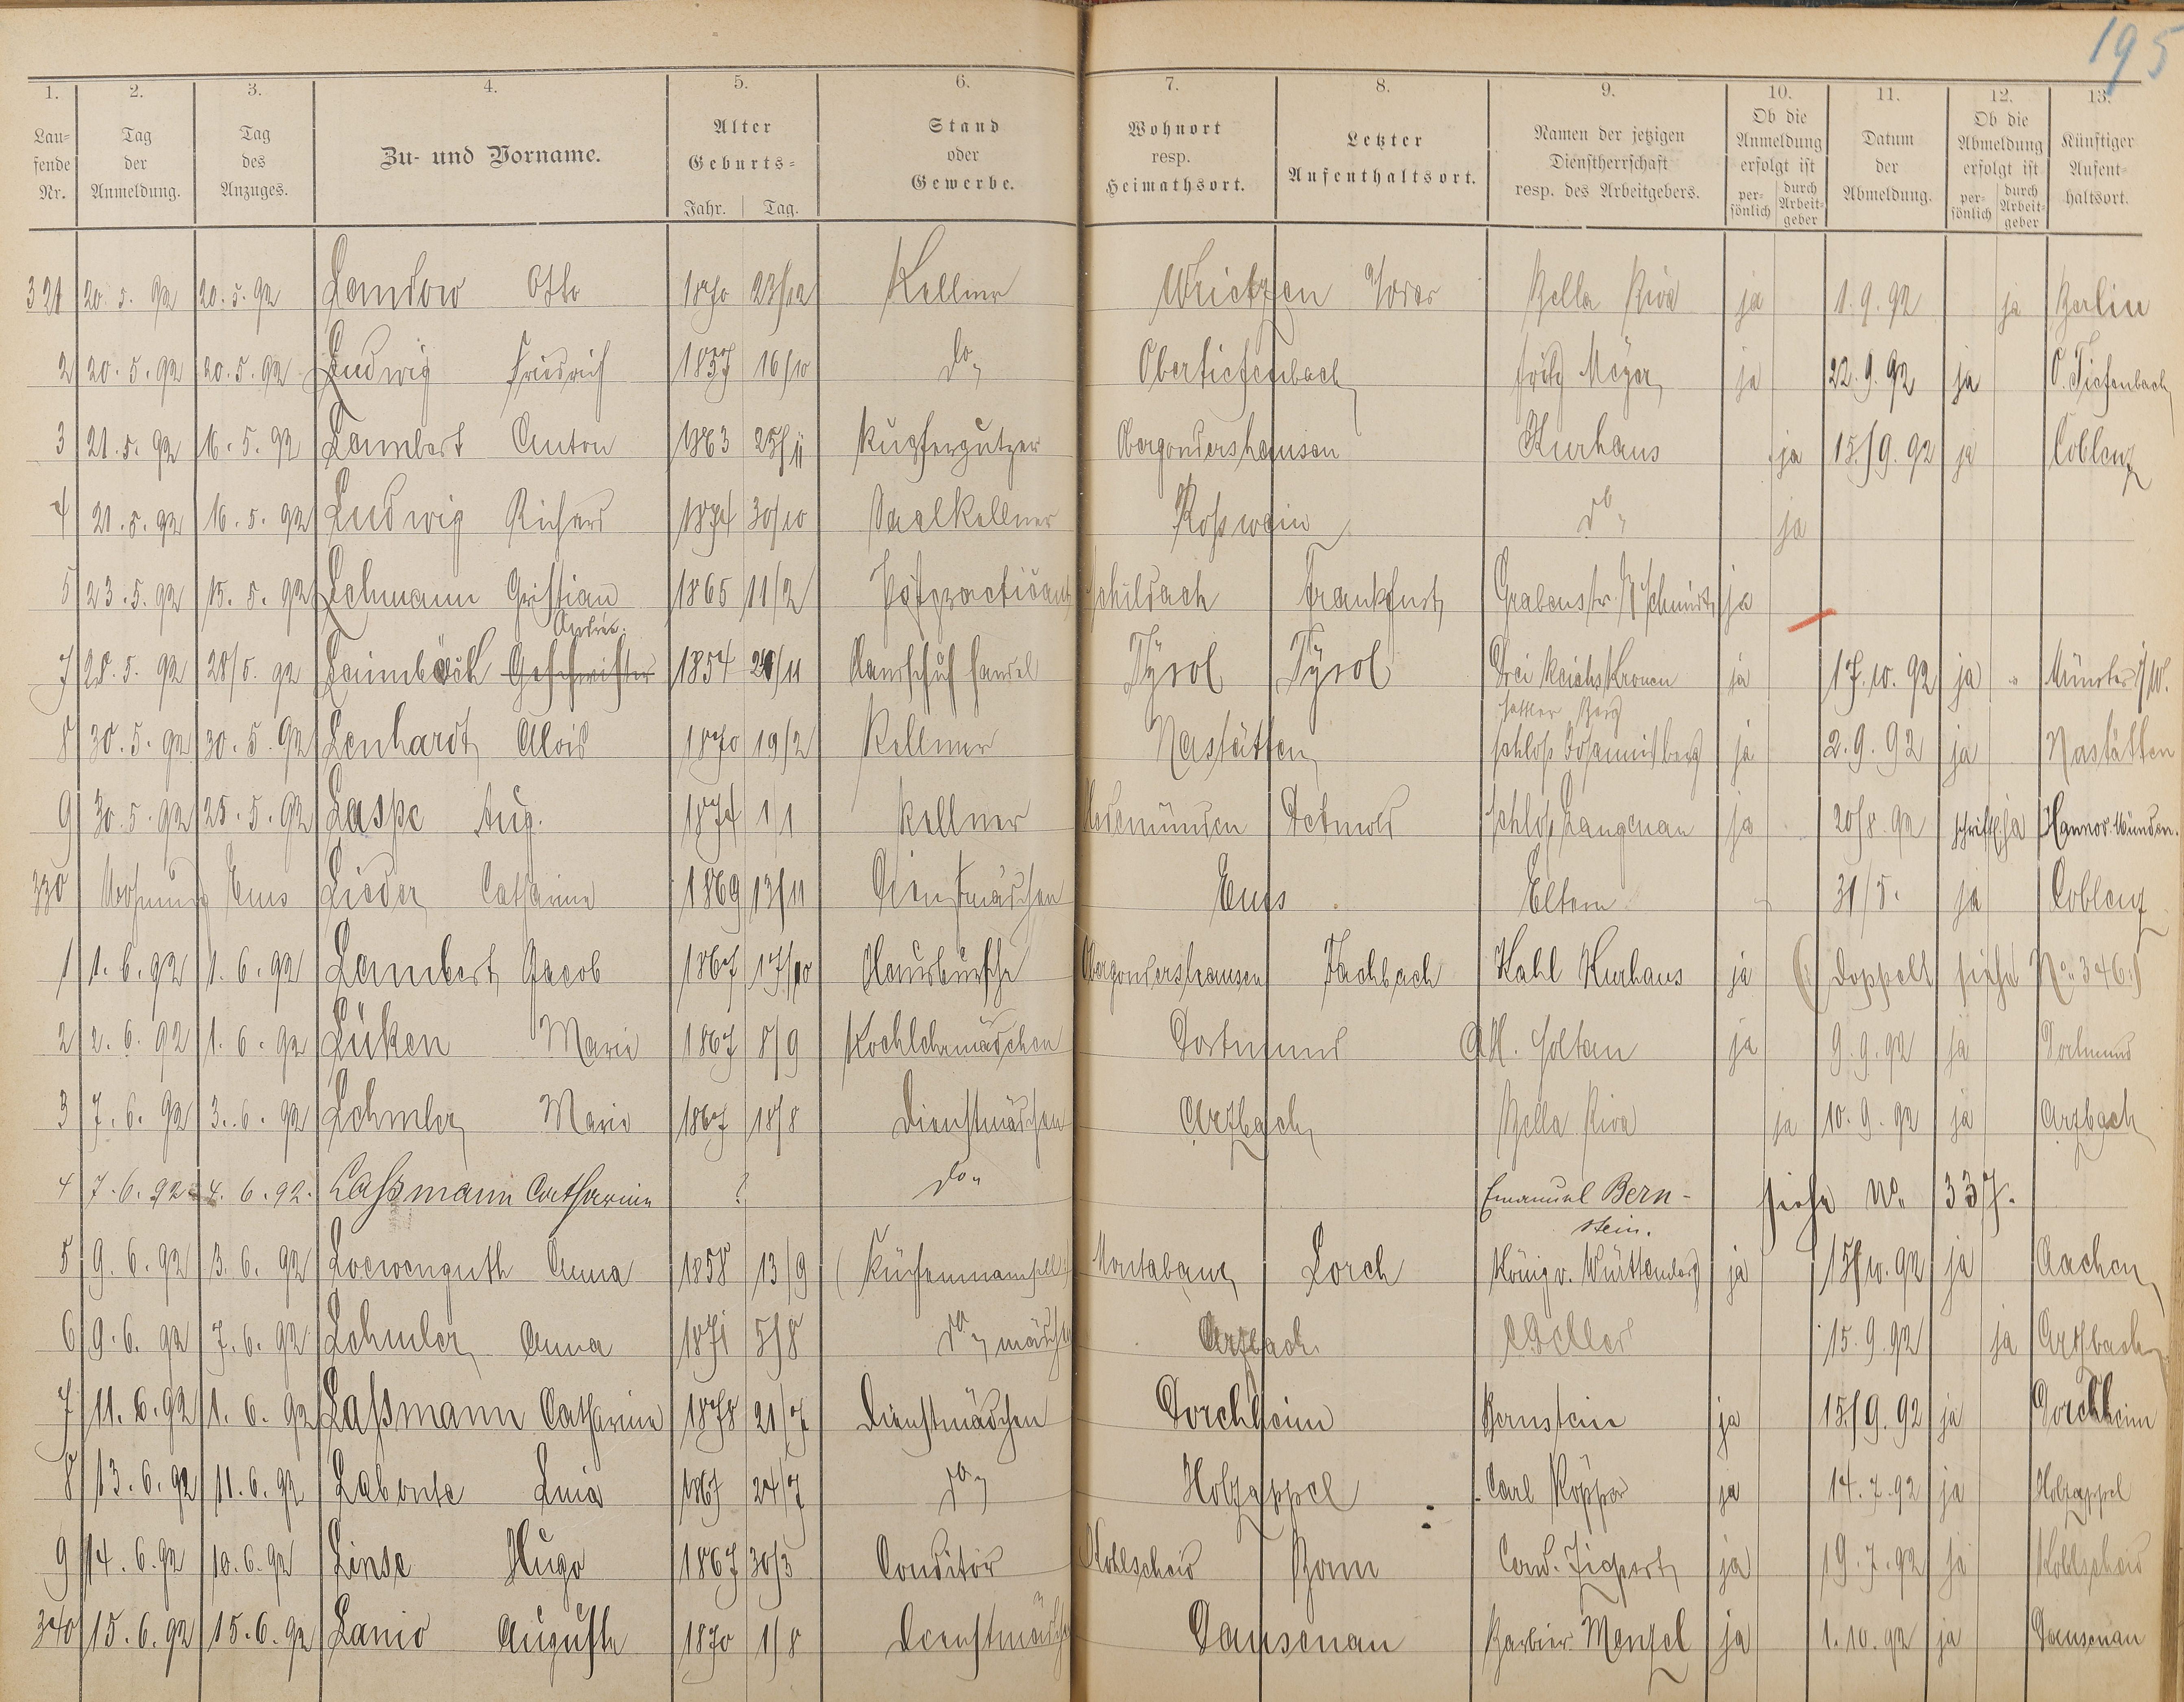 195
1. 2. 3. 4. 5. 6. 7. 8. 9. 10. 11. 12. 13.
Lau= fende Nr. Tag der Anmeldung. Tag des Anzuges. Zu- und Vorname. Alter Geburts= Jahr. Tag. Stand oder Gewerbe. Wohnort resp. Heimathsort. Letzter Aufenthaltsort. Namen der jetzigen Dienstherrschaft resp. des Arbeitgebers. Ob die Anmeldung erfolgt ist per= sönlich durch Arbeit= geber Datum der Abmeldung. Ob die Abmeldung erfolgt ist per= sönlich durch Arbeit= geber Künftiger Aufent= haltsort.
321 20.5.92 20.5.92 Landow Otto 1870 23/12 Kellner Wrietzen Bella Riva ja 1.9.92 ja Berlin
2 20.5.92 20.5.92 Ludwig Friedrich 1857 16/10 do Obertiefenbach Fritz Meyer ja 22.9.92 ja O. Tiefenbach
3 21.5.92 16.5.92 Lambert Anton 1863 25/11 Kupferputzer Obergondershausen Kurhaus ja 15/9.92 ja Coblenz
4 21.5.92 16.5.92 Ludwig Richard 1874 30/10 Saalkellner Roßwein do ja
5 23.5.92 15.5.92 Lehmann Christian 1865 11/2 Schildach Frankfurt Grabenstr. Schmidt ja
Andrä.
7 28.5.92 28/5.92 Laimböck Geschwister 1854 /11 Handschuh handel Tyrol Tyrol Drei Reichskronen ja 17.10.92 ja " Münster i/W.
Sattler Berg
8 30.5.92 30.5.92 Lenhardt Alois 1870 19/2 Kellner Nastätten Schloß Johannisberg ja 2.9.92 ja Nastätten
9 30.5.92 25.5.92 Laspe Aug. 1874 1/1 Kellner Hedemünden Detmold Schloß Langenau ja 20/8.92 schriftl. ja Hannov. Münden.
330 Wohnung Ems Lieder Catharine 1869 13/11 Dienstmädchen Ems Eltern 31/5. ja Coblenz
1 1.6.92 1.6.92 Lambert Jacob 1867 17/10 Hausbursche Obergondershausen Fachbach Kahl Kurhaus ja (: Doppelt siehe No 346:)
2 2.6.92 1.6.92 Lüken Marie 1867 8/9 Kochlehrmädchen Dortmund H. Soltau ja 9.9.92 ja Dortmund
3 7.6.92 3.6.92 Lehmler Marie 1867 18/8 Dienstmädchen Arzbach Bella Riva ja 10.9.92 ja Arzbach
4 7.6.92 4.6.92. Laßmann Catharine ? do Emanuel Bern- siehe No 337.
stein.
5 9.6.92 3.6.92 Loewenguth Anna 1858 13/9 (Küchenmamsell) Montabaur Lorch König v. Württemberg ja 15/10.92 ja Aachen
6 9.6.92 7.6.92 Lehmler Anna 1871 5/8 do mädch Arzbach 15.9.92 ja Arzbach
7 11.6.92 1.6.92 Laßmann Catharine 1878 21/7 Dienstmädchen Dorchheim Bernstein ja 15/9.92 ja Dorchheim
8 13.6.92 11.6.92 Labonte Lina 1867 24/7 do Holzappel Carl Köpper ja 14.7.92 ja Holzappel
9 14.6.92 10.6.92 Linse Hugo 1867 30/3 Conditor Kohlscheid Bonn Cond. ja 19.7.92 ja Kohlscheid
340 15.6.92 15.6.92 Lanio Auguste 1870 1/8 Dienstmädch Dausenau Barbier Menzel ja 1.10.92 ja Dausenau